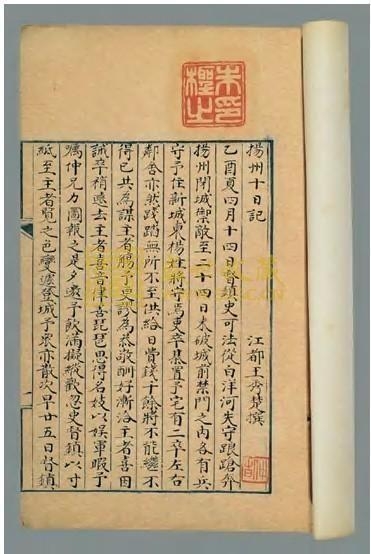 揚州十日記
江都王秀楚撰
乙酉夏四月十四日督鎮史可法從白洋河失守踉蹌奔
揚州閉城禦敵至二十四日未破城前禁門之內各有兵
守予住新城東楊姓將守焉吏卒棊置予宅有二卒左右
鄰舍亦然踐踏無所不至供給日費錢千餘將不能繼不
得已共為謀主者觴予更謬為恭敬酬好漸洽主者喜因
誡卒稍遠去主者喜音律善琵琶思得名妓以娛軍暇予
嘱仲兄力圖報之是夕邀予飲滿擬縱歡忽史督鎮以寸
紙至主者覽之色變遽登城予衆亦散次早廿五日督鎮